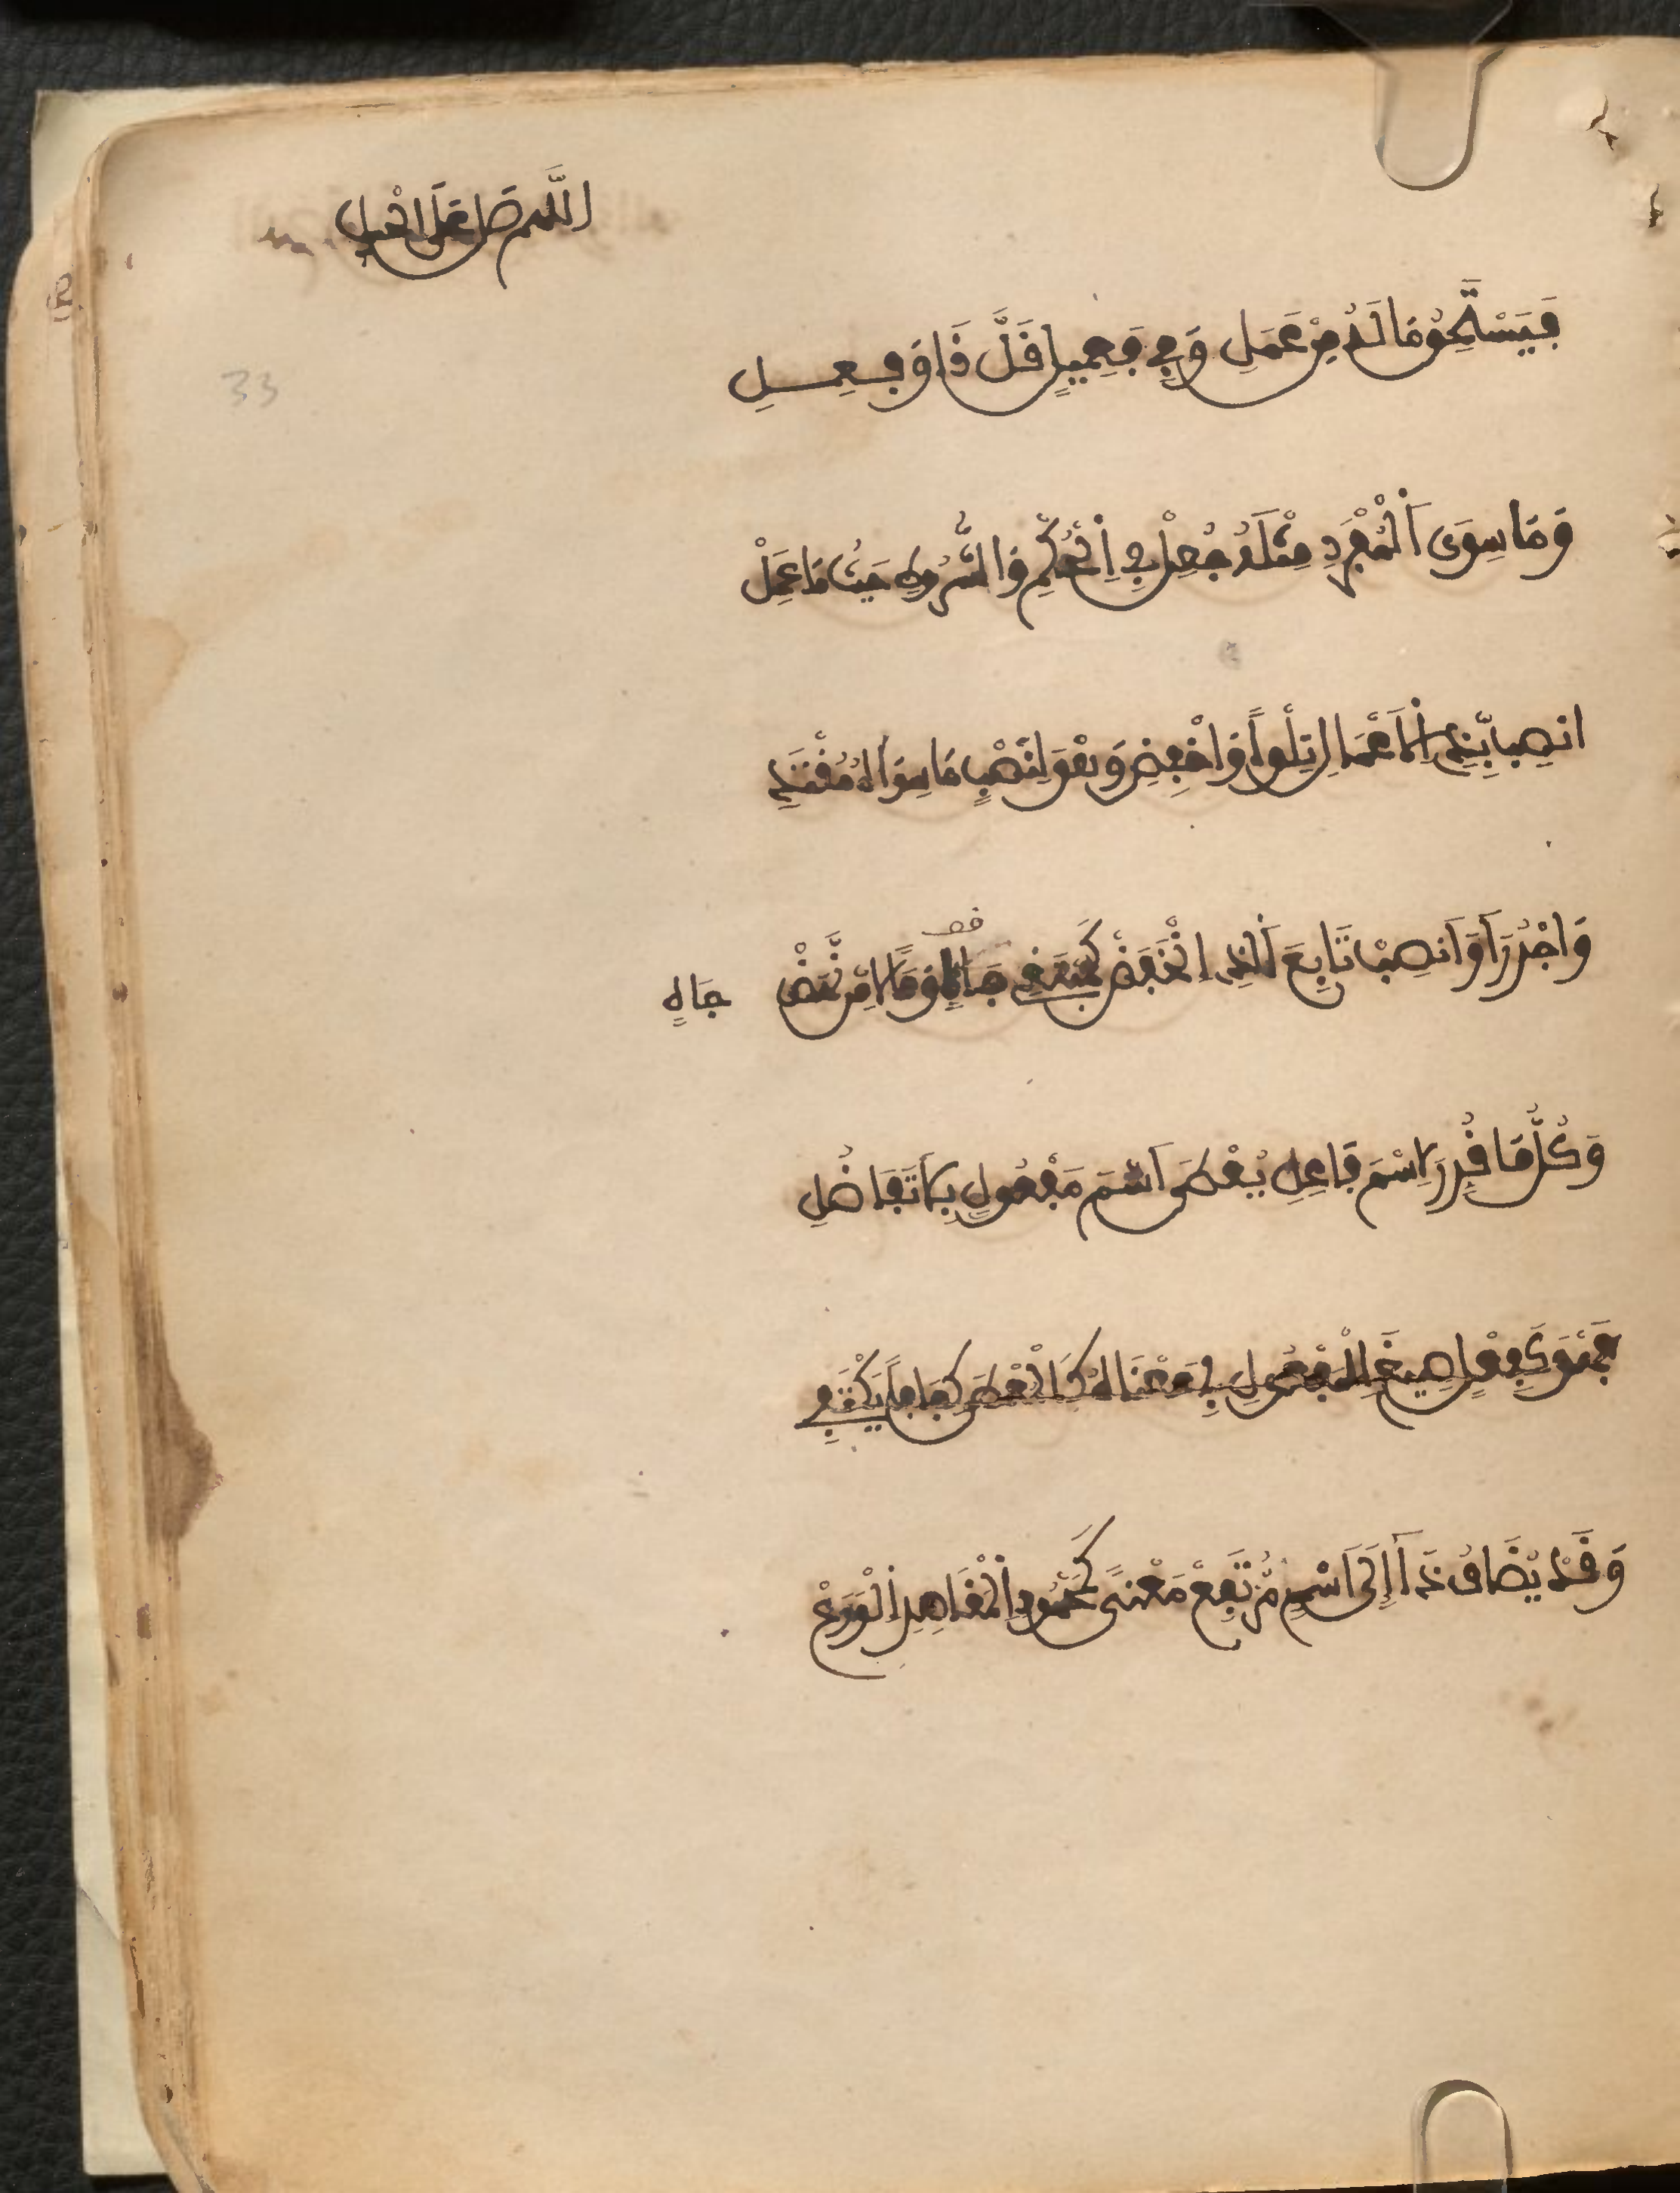 اللَّهم صَل عَلَى الحبيب
فَيَسْتَحِقُّ مَا لَهُ مِنْ عَمَلِ وَفِي فَعِيلٍ قَلَّ ذَا وَفَعِلِ
وَمَا سِوَى اَلْمُفْرَدِ مِثْلَهُ جُعِلْ فِي اِلْحُكْمِ وَالشُّرُوطِ حَيْثُ مَا عَمِلْ
انصِبْ بِذِي اِلاَعْمَالِ تِلْواً وَاخْفِضِ وَهْوَ لِنَصْبِ مَا سِوَاهُ مُقْتَضِ
وَاجْرُرَ اَوَ اَنصِبْ تَابِعَ اَلذِي اِنْخَفَضْ كَمُبْتَغِي جَاهٍ وَمَالاً مَّن نَّهَضْ جَاهٍ
وَكُلُّ مَا قُرِّرَ لاِسْمِ فَاعِلِ يُعْطَى اَسْمَ مَفْعُولٍ بِلاَ تَفَاضُلِ
فَهْوَ كَفِعْلٍ صِيغَ لِلْمَفْعُولِ فِي مَعْنَاهُ كَالْمُعْطَى كَفَافاً يَكْتَفِي
وَقَدْ يُضَافُ ذَا إِلَى اَسْمٍ مُّرْتَفِعْ مَعْنىً كَمَحْمُودِ اِلْمَقَاصِدِ اِلْوَرِعْ
33